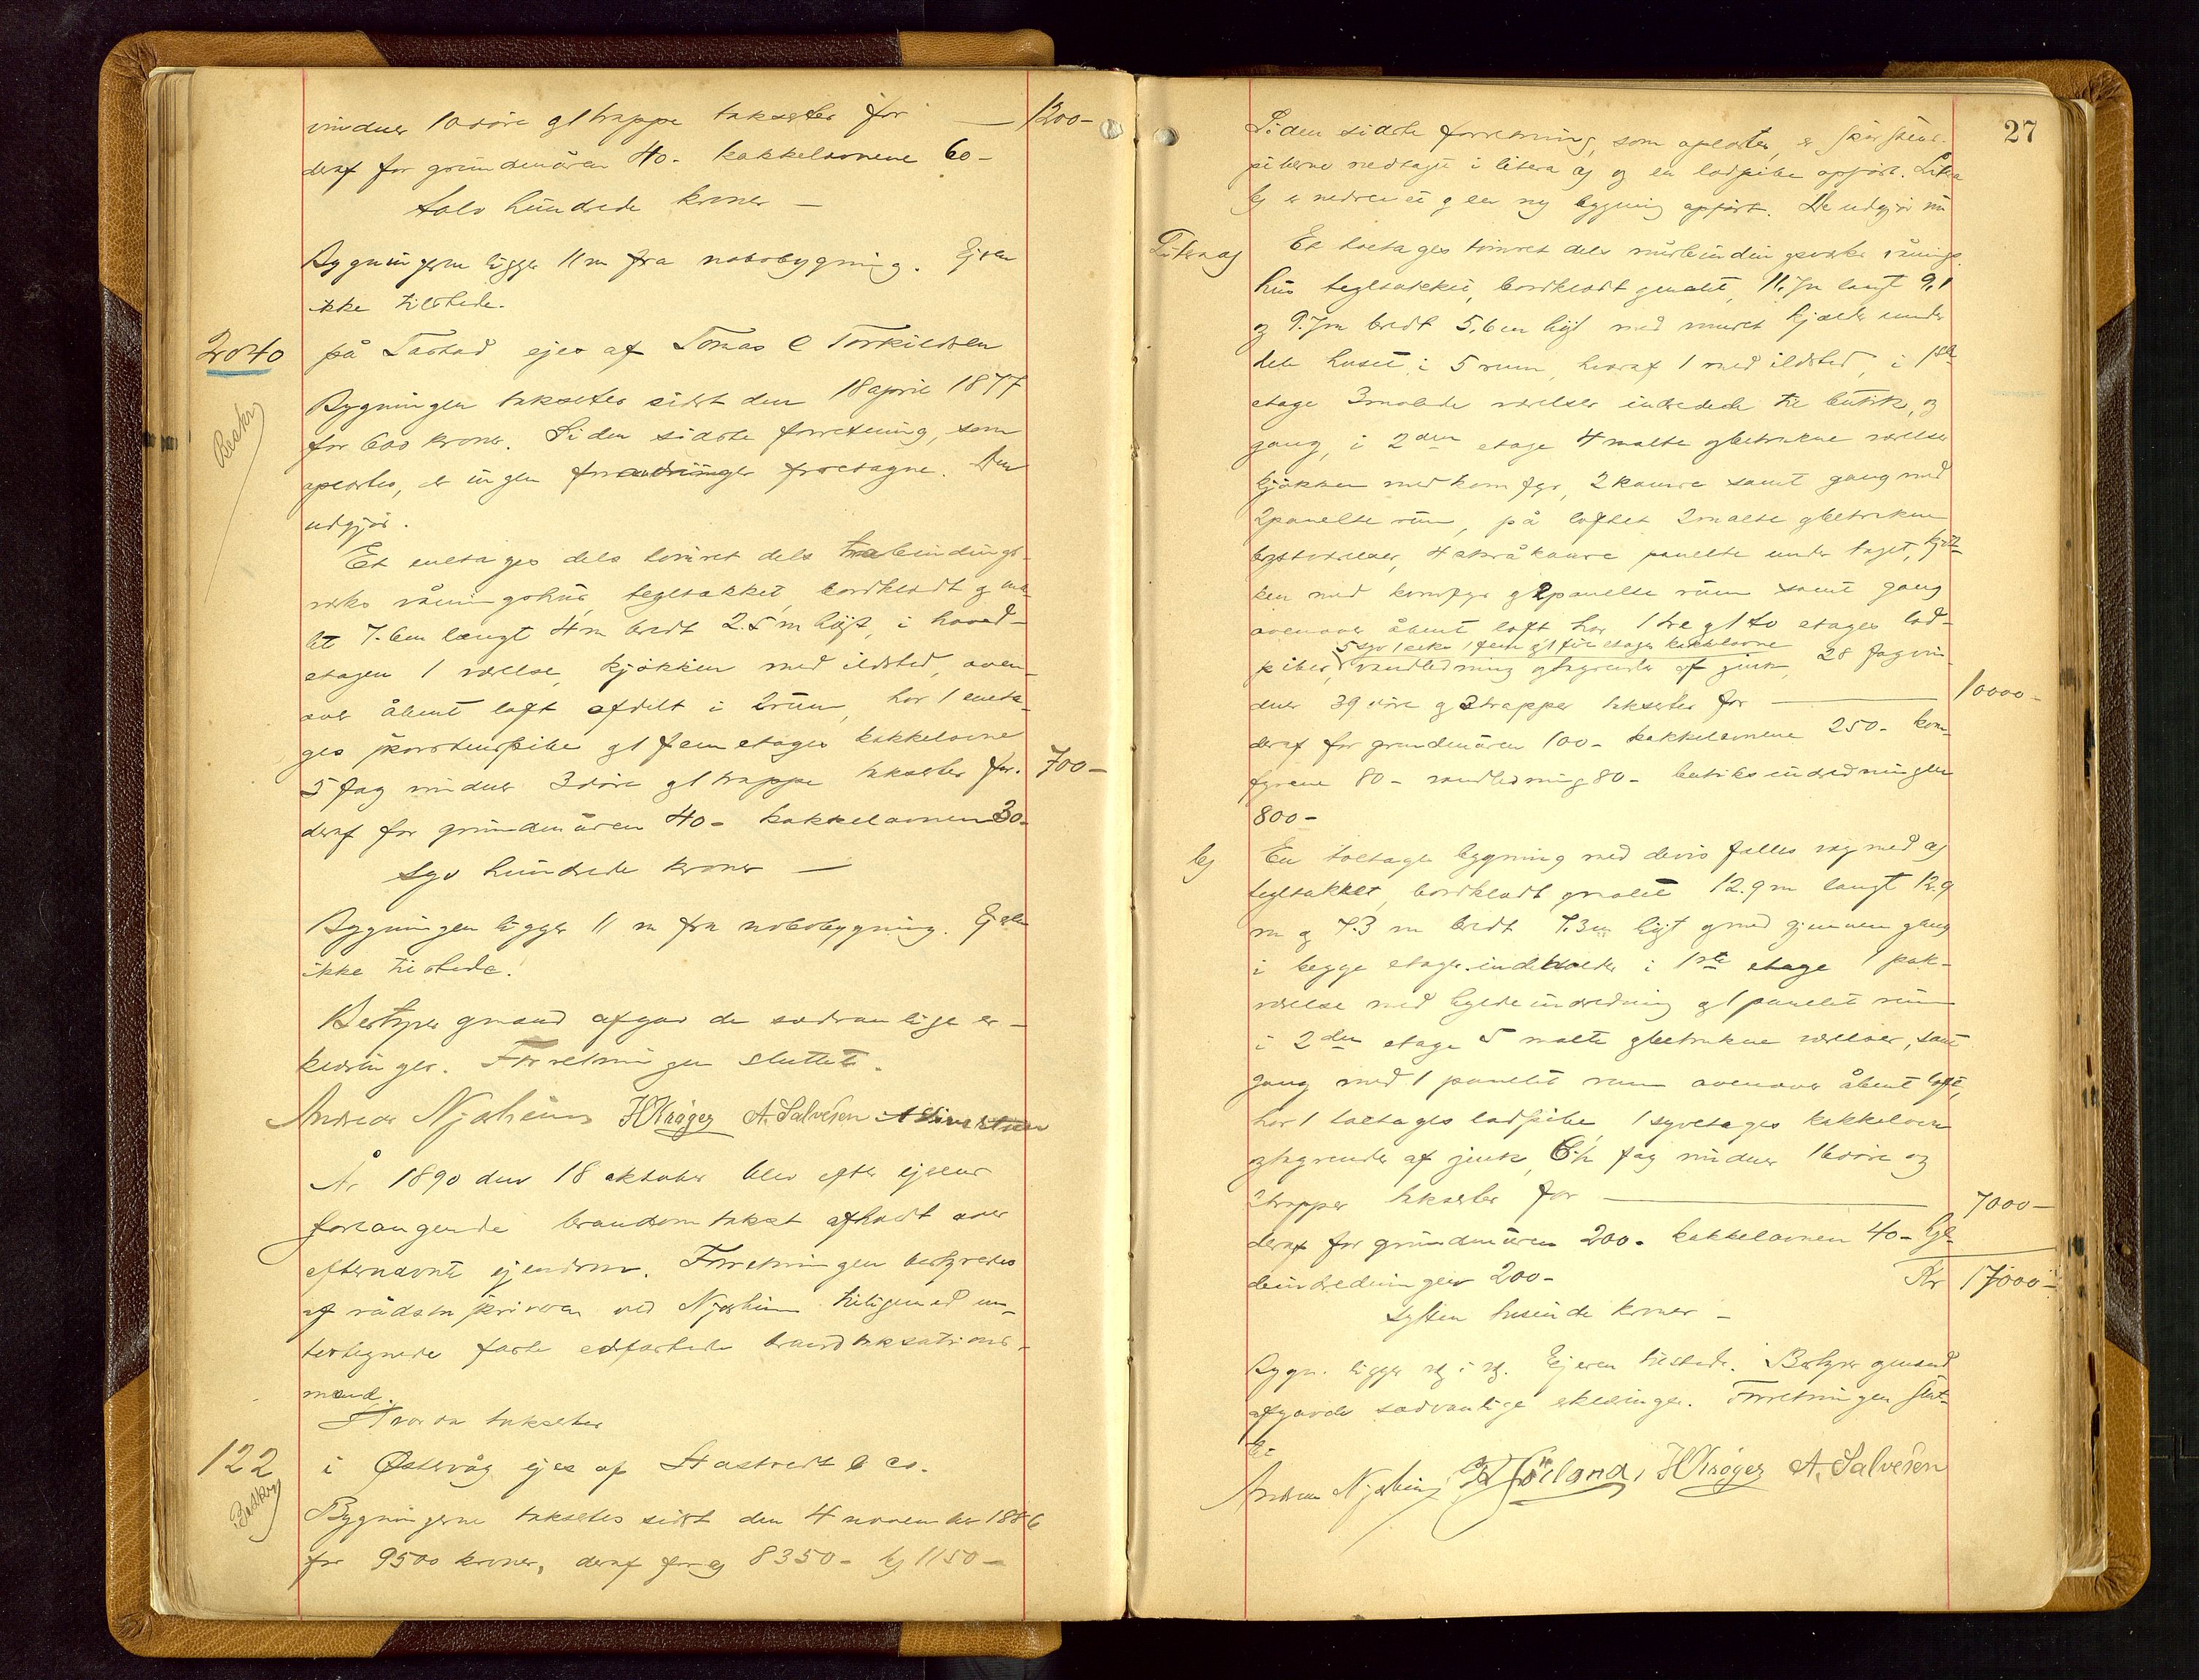 vinduer 10 döre g 1 trappe takseres for — 1200-
deraf for grundmüren 40- kakkelovnene 60-
tolv hündrede kroner —
Bygningerne ligger 11 m fra nabobygning. Ejeren
ikke tilstede.
2040 på Tastad ejes af Tomas C Torkildsen
Beskr
Bygningen taksertes sidst den 18 april 1877
for 600 kroner. Siden sidste forretning, som
oplæstes, er ingen forandringer foretagne. Den
udgjör.
Et enetages dels tömret dels træbindings-
verks våningshüs, tegltakket, bordklædt g ma-
let 7.6m langt 4m bredt 2.5m höjt, i hoved-
etagen 1 værelse, kjökken med ildsted, oven-
over åbent loft afdelt i 2 rüm, har 1 eneta-
ges skorstenspibe g 1 femetages kakkelovne
5 fag vinduer 3 döre g 1 trappe takseres for. 700-
deraf for grundmüren 40- kakkelovnen 30-
syv hundrede kroner —
Bygningen ligger 11 m fra nabobygning. Ejeren
ikke tilstede.
Bestyrer g mænd afgav de sædvanlige er-
klæringer. Forretningen sluttet.
Andreas Njærheim HKröger A. Salvesen
År 1890 den 18 oktober blev efter ejerens
forlangende brandomtakst afholdt over
efternævnte ejendom. Forretningen bestyredes
af rådstuskriveren ved Njærheim tilligemed un-
tertegnede faste edfæstede brandtaksations-
mænd.
Hvorda takseres
122 i Østervåg ejes af Hastvedt & co.
Beskr
Bygningerne taksertes sidst den 4 november 1886
for 9500 kroner, deraf for a) 8350- b) 1150-
27
Siden sidste forretning, som oplæstes, er skorstens-
piberne nedtagne i litera a) og en ladpibe opfört. Litra
b) er nedrevet g en ny bygning opfört. De udgjör nu
Litera a) Et toetages tömret dels mürbindingsverks vånings-
hüs tegltakket, bordklædt g malet, 11.7m langt 9.1
og 9.7m bredt 5.6m höjt med muret kjælder under
hele huset i 5 rum, hvoraf 1 med ildsted, i 1ste
etage 3 malede værelser indredede til butik, og
gang, i 2den etage 4 malte g betrukne værelser
kjökken med komfyr, 2 kamre samt gang med
2 panelte rüm, på loftet 2 malte g betrukne
kvistværelser, 4 skråkamre panelte under taget, kjök-
ken med komfyr g 2 panelte rüm samt gang
ovenover åbent loft har 1 tre g 1 to etages lad-
5 syv 1 seks 1 fem g 1 fire etages kakkelovne
piber, vandledning g tagrender af zink, 28 fag vin-
duer 39 döre g 3 trapper takseres for — 10000-
deraf for grundmüren 100- kakkelovnene 250- kom-
fyrene 80- vandledning 80- butiksindredningen
800-
b) En toetages bygning med delvis fælles væg med a)
tegltakket, bordklædt g malet 12.9m langt 12.9
m og 7.3 m bredt 7.3m höjt g med gjennemgang
i begge etager indeholder i 1ste etage 1 pak-
værelse med hyldeindredning g 1 panelet rüm
i 2den etage 5 malte g betrukne værelser, samt
gang med 1 panelet rum ovenover åbent loft,
har 1 toetages ladpibe, 1 syvetages kakkelovn
g tagrender af zink, 6 ½ fag vinduer 16 döre og
2 trapper takseres for — 7000-
deraf for grundmüren 200- kakkelovnen 40- hyl-
deindredningen 200- Kr 17000-
sytten tusinde kroner -
Bygn. ligger væg i væg. Ejeren tilstede. Bestyrer g mænd
afgavde sædvanlige erklæringer. Forretningen slut-
tet
Andreas Njærheim HKröger A. Salvesen